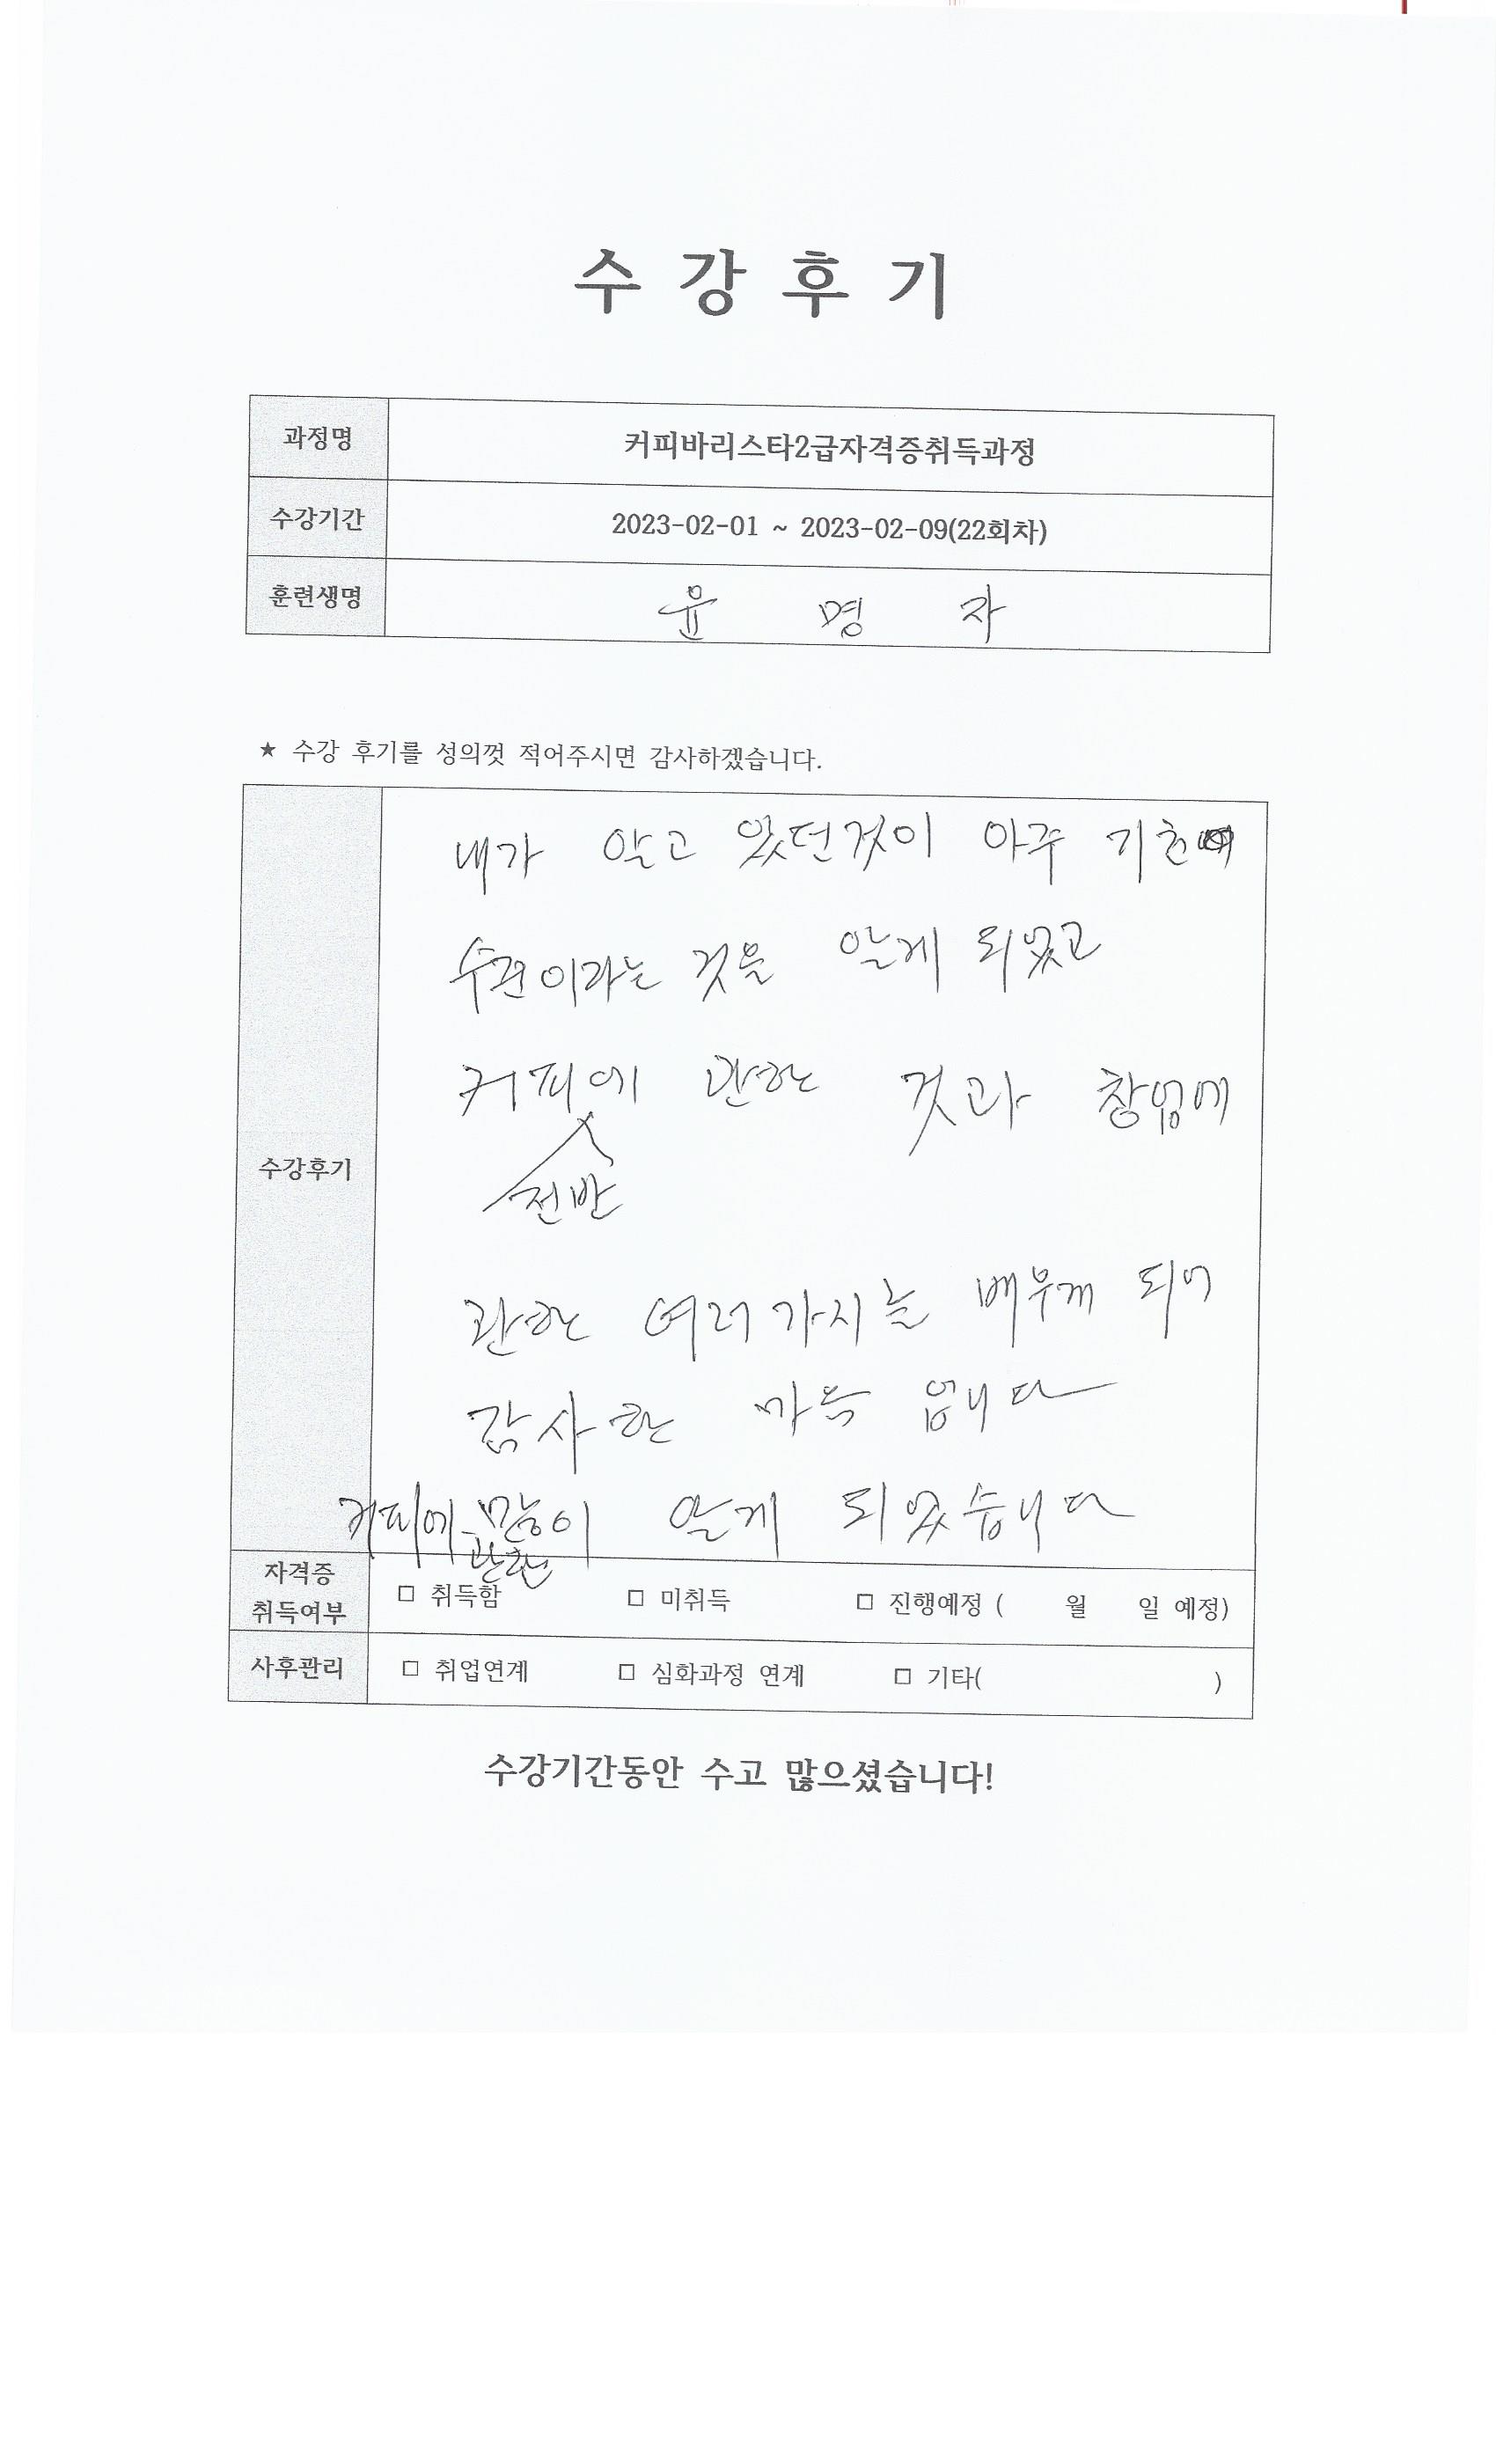 수 강 후 기
과정명 커피바리스타2급자격증취득과정
수강기간 2023-02-01 ~ 2023-02-09(22회차)
훈련생명 윤 명 자
★ 수강 후기를 성의껏 적어주시면 감사하겠습니다.
수강후기
내가 알고 있던것이 아주 기초
수준이라는 것을 알게 되었고
커피에 관한 것과 창업에
전반
관한 여러가지를 배우게 되어
감사한 마음 입니다
커피에 많이 알게 되었습니다
관한
자격증
취득여부 □ 취득함 □ 미취득 □ 진행예정 ( 월 일 예정)
사후관리 □ 취업연계 □ 심화과정 연계 □ 기타( )
수강기간동안 수고 많으셨습니다!